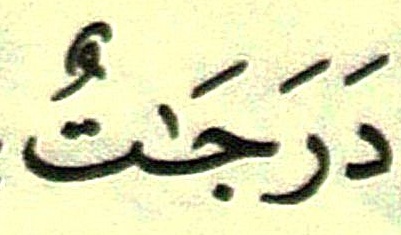 دَرَجَٰتٌ